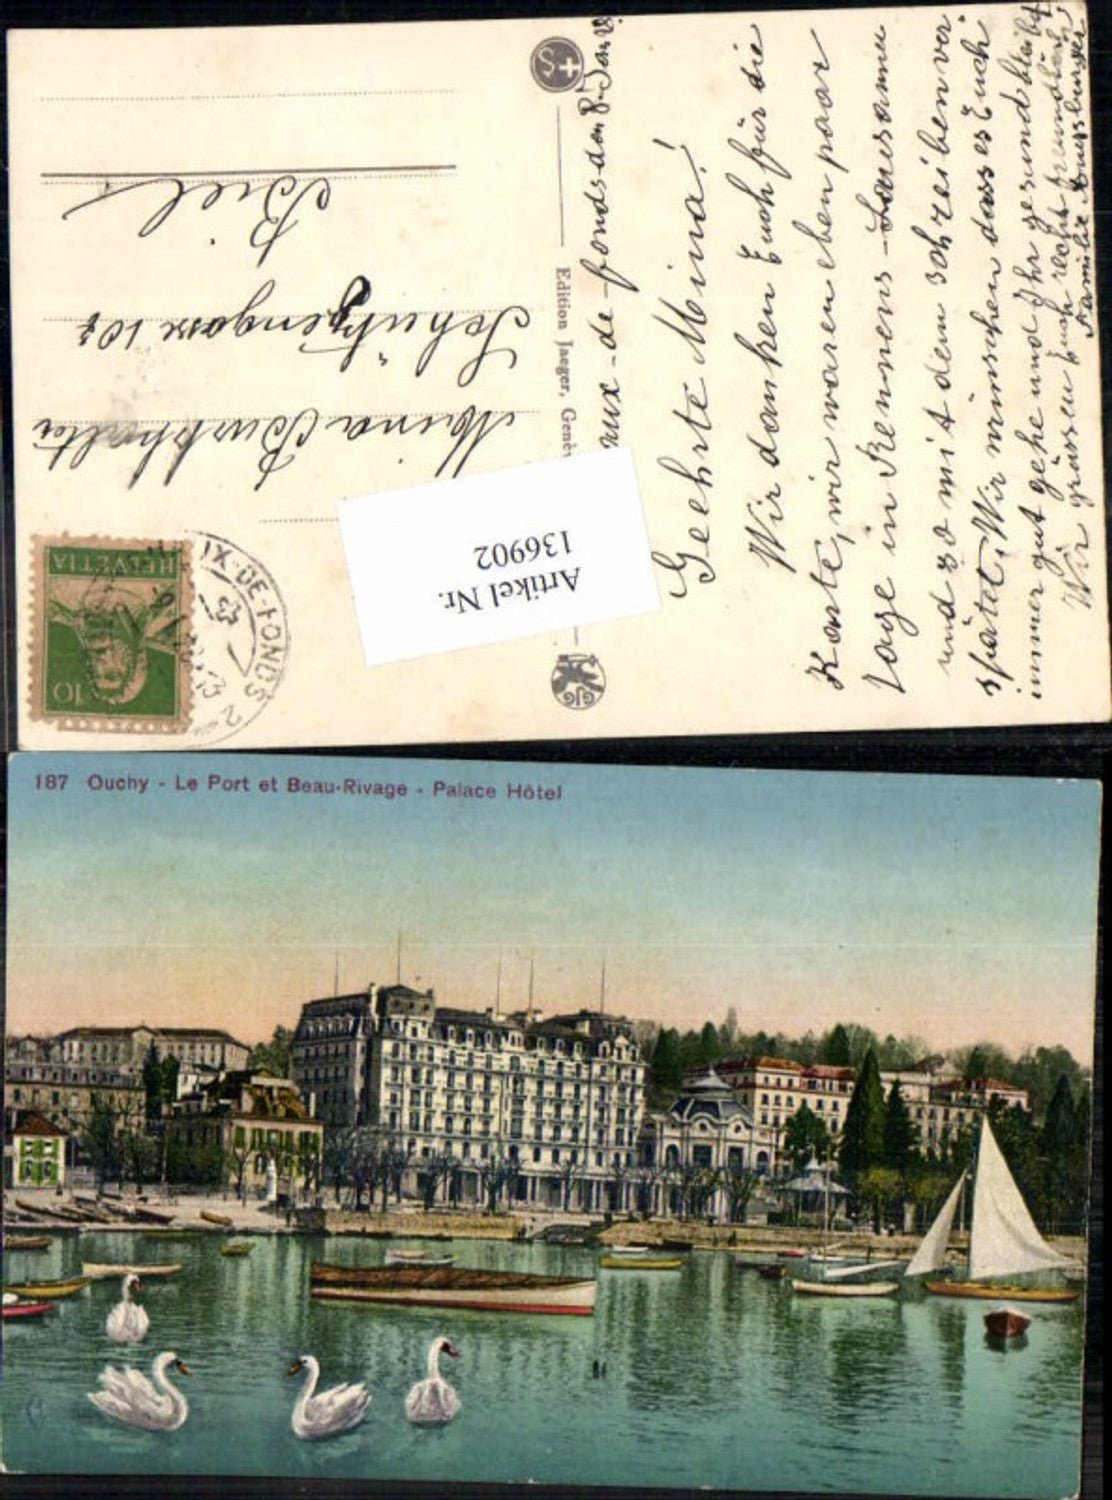 HELVETIA
10
-DE-FONDS
2
Artikel Nr.
136902
Edition Jaeger, Genèv
Mina
Schützengasse 107
Biel
ux-de-fonds den 8. Jan
Geehrte Mina!
Wir danken Euch für die
Karte, wir waren eben paar
Tage in Rennens-Lausanne
und so mit dem schreiben ver
spätet, Wir wünschen dass es Euch
immer gut gehe und Ihr gesund bleibt
Wir grüssen Euch recht freundlich
Familie
187 Ouchy - Le Port et Beau-Rivage - Palace Hôtel